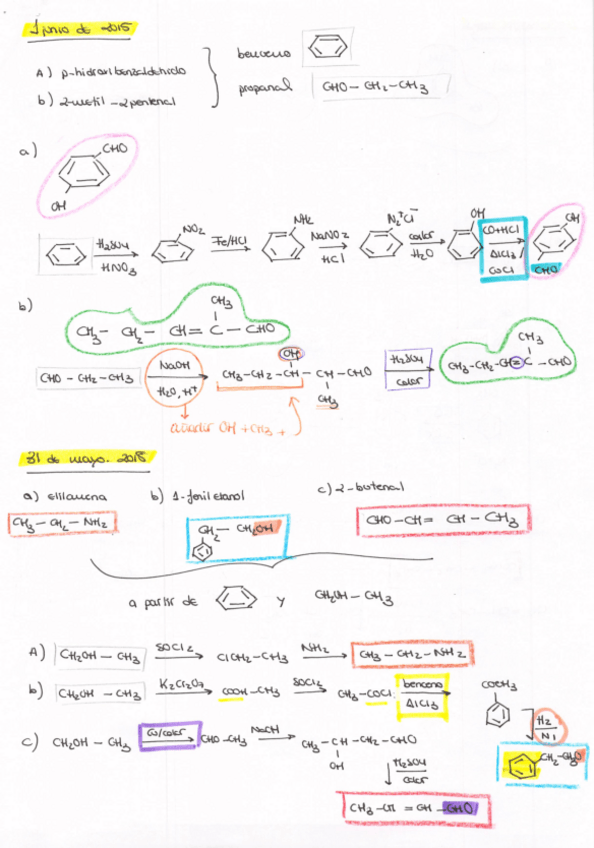 Junio de 2015
A) p-hidroxibenzaldehido
b) 2-metil-2pentenal
benceno
propanal CHO – CH2 – CH3
a)
CHO
OH
H2SO4
HNO3
NO2
Fe/HCl
NH2
NaNO2
HCl
N2+Cl-
calor
H2O
OH
CO+HCl
AlCl3/
CuCl
OH
CHO
b)
CH3
CH3 – CH2 – CH = C – CHO
CHO – CH2 – CH3
NaOH
H2O, H+
OH
CH3 – CH2 – CH – CH – CHO
CH3
H2SO4
calor
CH3
CH3 – CH2 – CH = C – CHO
añadir OH + CH3 +
31 de mayo. 2018
a) etilamina b) 1-feniletanol c) 2-butenal
CH3 – CH2 – NH2
CH2 – CH2OH
CHO – CH = CH – CH3
a partir de y CH2OH – CH3
A) CH2OH – CH3 SOCl2 ClCH2 – CH3 NH3 CH3 – CH2 – NH2
b) CH2OH – CH3 K2Cr2O7 COOH – CH3 SOCl2 CH3 – COCl benceno
AlCl3
COCH3
H2
Ni
c) CH2OH – CH3 Cu/calor CHO – CH3 NaOH CH3 – CH – CH2 – CHO
OH
H2SO4
calor
CH3 – CH = CH – CHO